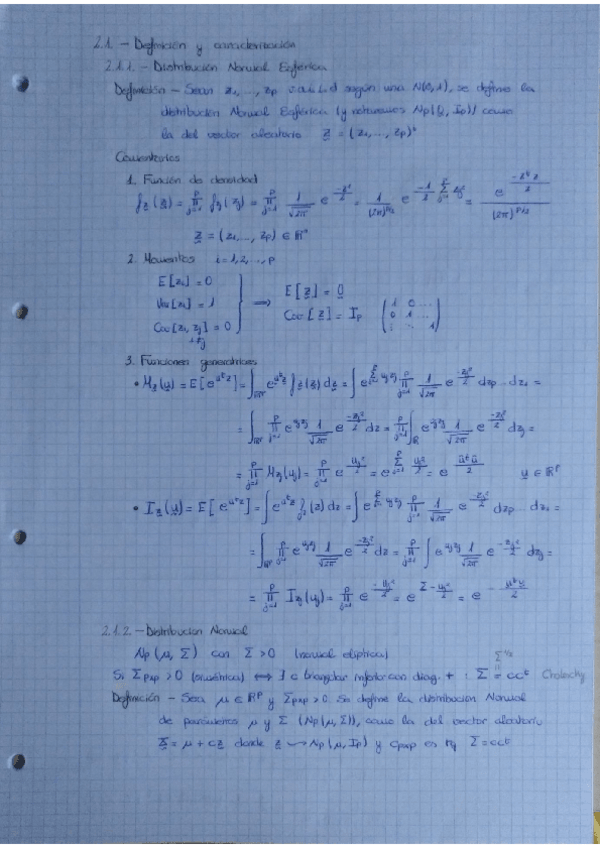 2.1. - Definición y caracterización
2.1.1. - Distribución Normal Esférica
Definición - Sean z₁, ..., zp v.a.i.i.d según una N(0,1), se define la
distribución Normal Esférica (y notaremos Np(0, Ip)) como
la del vector aleatorio z = (z₁, ..., zp)ᵗ
Comentarios
1. Función de densidad
f_z(z) = ∏_{j=1}^p f_{zj}(zj) = ∏_{j=1}^p 1/√2π e^{-zj²/2} = 1/(2π)^{p/2} e^{-1/2 Σ_{j=1}^p zj²} = e^{-zᵗz/2}/(2π)^{p/2}
z = (z₁, ..., zp) ∈ ℝᵖ
2. Momentos i=1,2,...,p
E[zi] = 0
Var[zi] = 1
Cov[zi, zj] = 0
i≠j
⟹ E[z] = 0
Cov[z] = Ip (1 0 ... 0 1 ... 1)
3. Funciones generatrices
• M_z(u) = E[e^{uᵗz}] = ∫_{ℝᵖ} e^{uᵗz} f_z(z) dz = ∫ e^{Σ uj zj} ∏_{j=1}^p 1/√2π e^{-zj²/2} dzp ... dz₁ =
= ∫_{ℝᵖ} ∏_{j=1}^p e^{uj zj} 1/√2π e^{-zj²/2} dz = ∏_{j=1}^p ∫_ℝ e^{uj zj} 1/√2π e^{-zj²/2} dzj =
= ∏_{j=1}^p M_{zj}(uj) = ∏_{j=1}^p e^{uj²/2} = e^{Σ uj²/2} = e^{uᵗu/2} u ∈ ℝᵖ
• I_z(u) = E[e^{uᵗz}] = ∫ e^{uᵗz} f_z(z) dz = ∫ e^{Σ uj zj} ∏_{j=1}^p 1/√2π e^{-zj²/2} dzp ... dz₁ =
= ∫_{ℝᵖ} ∏_{j=1}^p e^{uj zj} 1/√2π e^{-zj²/2} dz = ∏_{j=1}^p ∫ e^{uj zj} 1/√2π e^{-zj²/2} dzj =
= ∏_{j=1}^p I_{zj}(uj) = ∏_{j=1}^p e^{-uj²/2} = e^{Σ -uj²/2} = e^{-uᵗu/2}
2.1.2. - Distribucion Normal
Np(μ, Σ) con Σ>0 (normal elíptica)
Si Σpxp>0 (simétrica) ⟺ ∃ c triangular inferior con diag. + : Σ = ccᵗ Cholesky
Definición - Sea μ ∈ ℝᵖ y Σpxp>0. Se define la distribución Normal
de parámetros μ y Σ (Np(μ, Σ)), como la del vector aleatorio
X = μ + cz donde z ⤳ Np(μ, Ip) y cpxp es tq Σ=ccᵗ